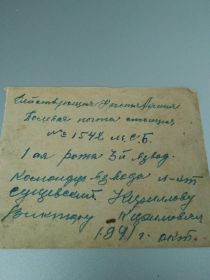 Действующая Красная Армия
Полевая почта станция
№ 1542 м.С.Б.
1ая рота 3й взвод.
Командир взвода л-нт
Сущевский Кириллову
Виктору Кирилловичу
1941 г. окт.